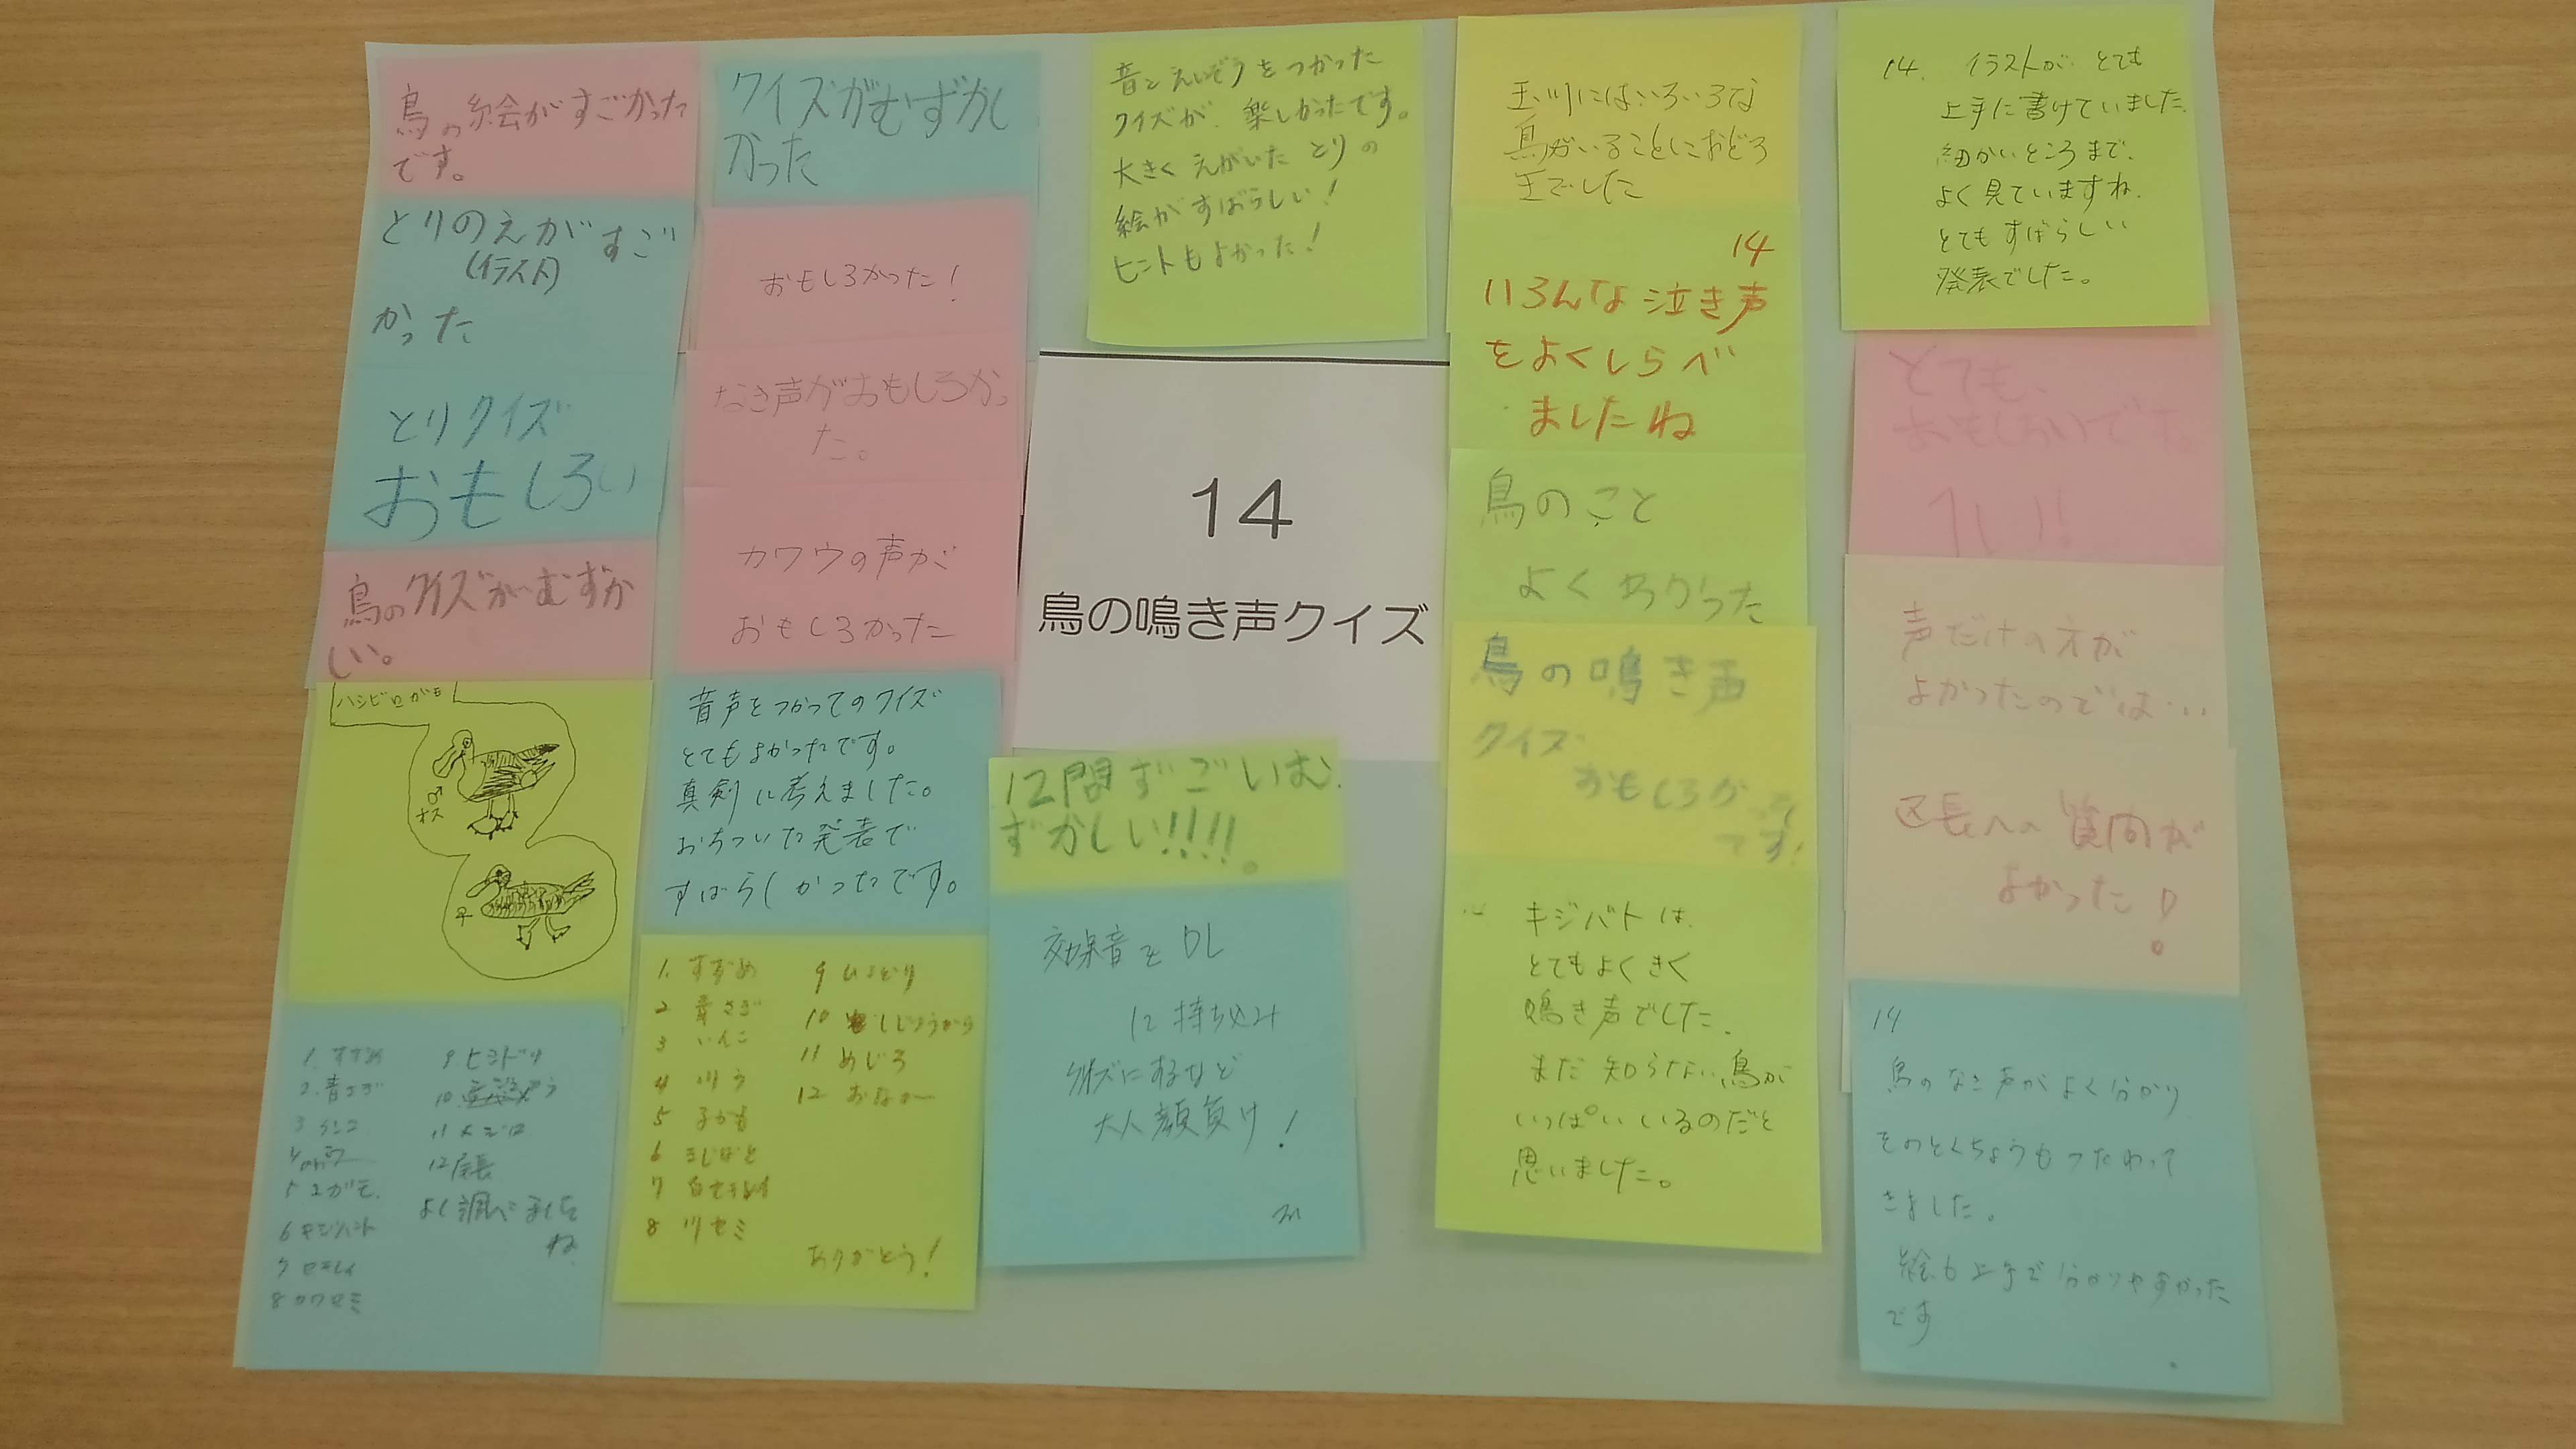 鳥の絵がすごかった
です。
とりのえがすご
(イラスト)
かった
とりクイズ
おもしろい
鳥のクイズがむずか
しい。
ハシビロがも
♂
オス
♀
1. すずめ
2. 青さぎ
3 インコ
5 コガモ
6 キジバト
7 セキレイ
8 カワセミ
9 ヒヨドリ
10
11 メジロ
12 尾長
よく調べました
ね
クイズがむずかし
かった
おもしろかった!
なき声がおもしろかっ
た。
カワウの声が
おもしろかった
音声をつかってのクイズ
とてもよかったです。
真剣に考えました。
おちついた発表で
すばらしかったです。
1. すずめ
2 青さぎ
3 いんこ
4 川う
5 こがも
6 きじばと
7 白セキレイ
8 川セミ
9 ひよどり
10 しじゅうから
11 めじろ
12 おなが
ありがとう!
音とえいぞうをつかった
クイズが、楽しかったです。
大きくえがいたとりの
絵がすばらしい!
ヒントもよかった!
14
鳥の鳴き声クイズ
12問ずごいむ
ずかしい!!!!。
効果音をDL
に持ち込み
クイズにするなど
大人顔負け!
玉川にはいろいろな
鳥がいることにおどろ
きでした
14
いろんな泣き声
をよくしらべ
ましたね
鳥のこと
よくわかった
鳥の鳴き声
クイズ
おもしろかった
です!
キジバトは、
とてもよくきく
鳴き声でした。
まだ知らない鳥が
いっぱいいるのだと
思いました。
14. イラストがとても
上手に書けていました。
細かいところまで、
よく見ていますね。
とてもすばらしい
発表でした。
とても、
おもしろいです。
声だけのオが
よかったのでは…
区長への質問が
よかった!
14
鳥のなき声がよく分かり
そのとくちょうもつたわって
きました。
絵も上手で分かりやすかった
です